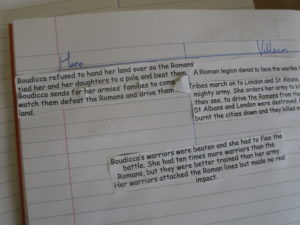 Hero
Villain
Boudicca refused to hand her land over so the Romans
tied her and her daughters to a pole and beat them.
Boudicca sends for her armies' families to come
watch them defeat the Romans and drive them
land.
A Roman legion dared to face the warlike
tribes march on to London and St Albans
mighty army. She orders her army to kill
they see, to drive the Romans from the
St Albans and London were destroyed.
burnt the cities down and they killed
Boudicca's warriors were beaten and she had to flee the
battle. She had ten times more warriors than the
Romans, but they were better trained then her army.
Her warriors attacked the Roman lines but made no real
impact.